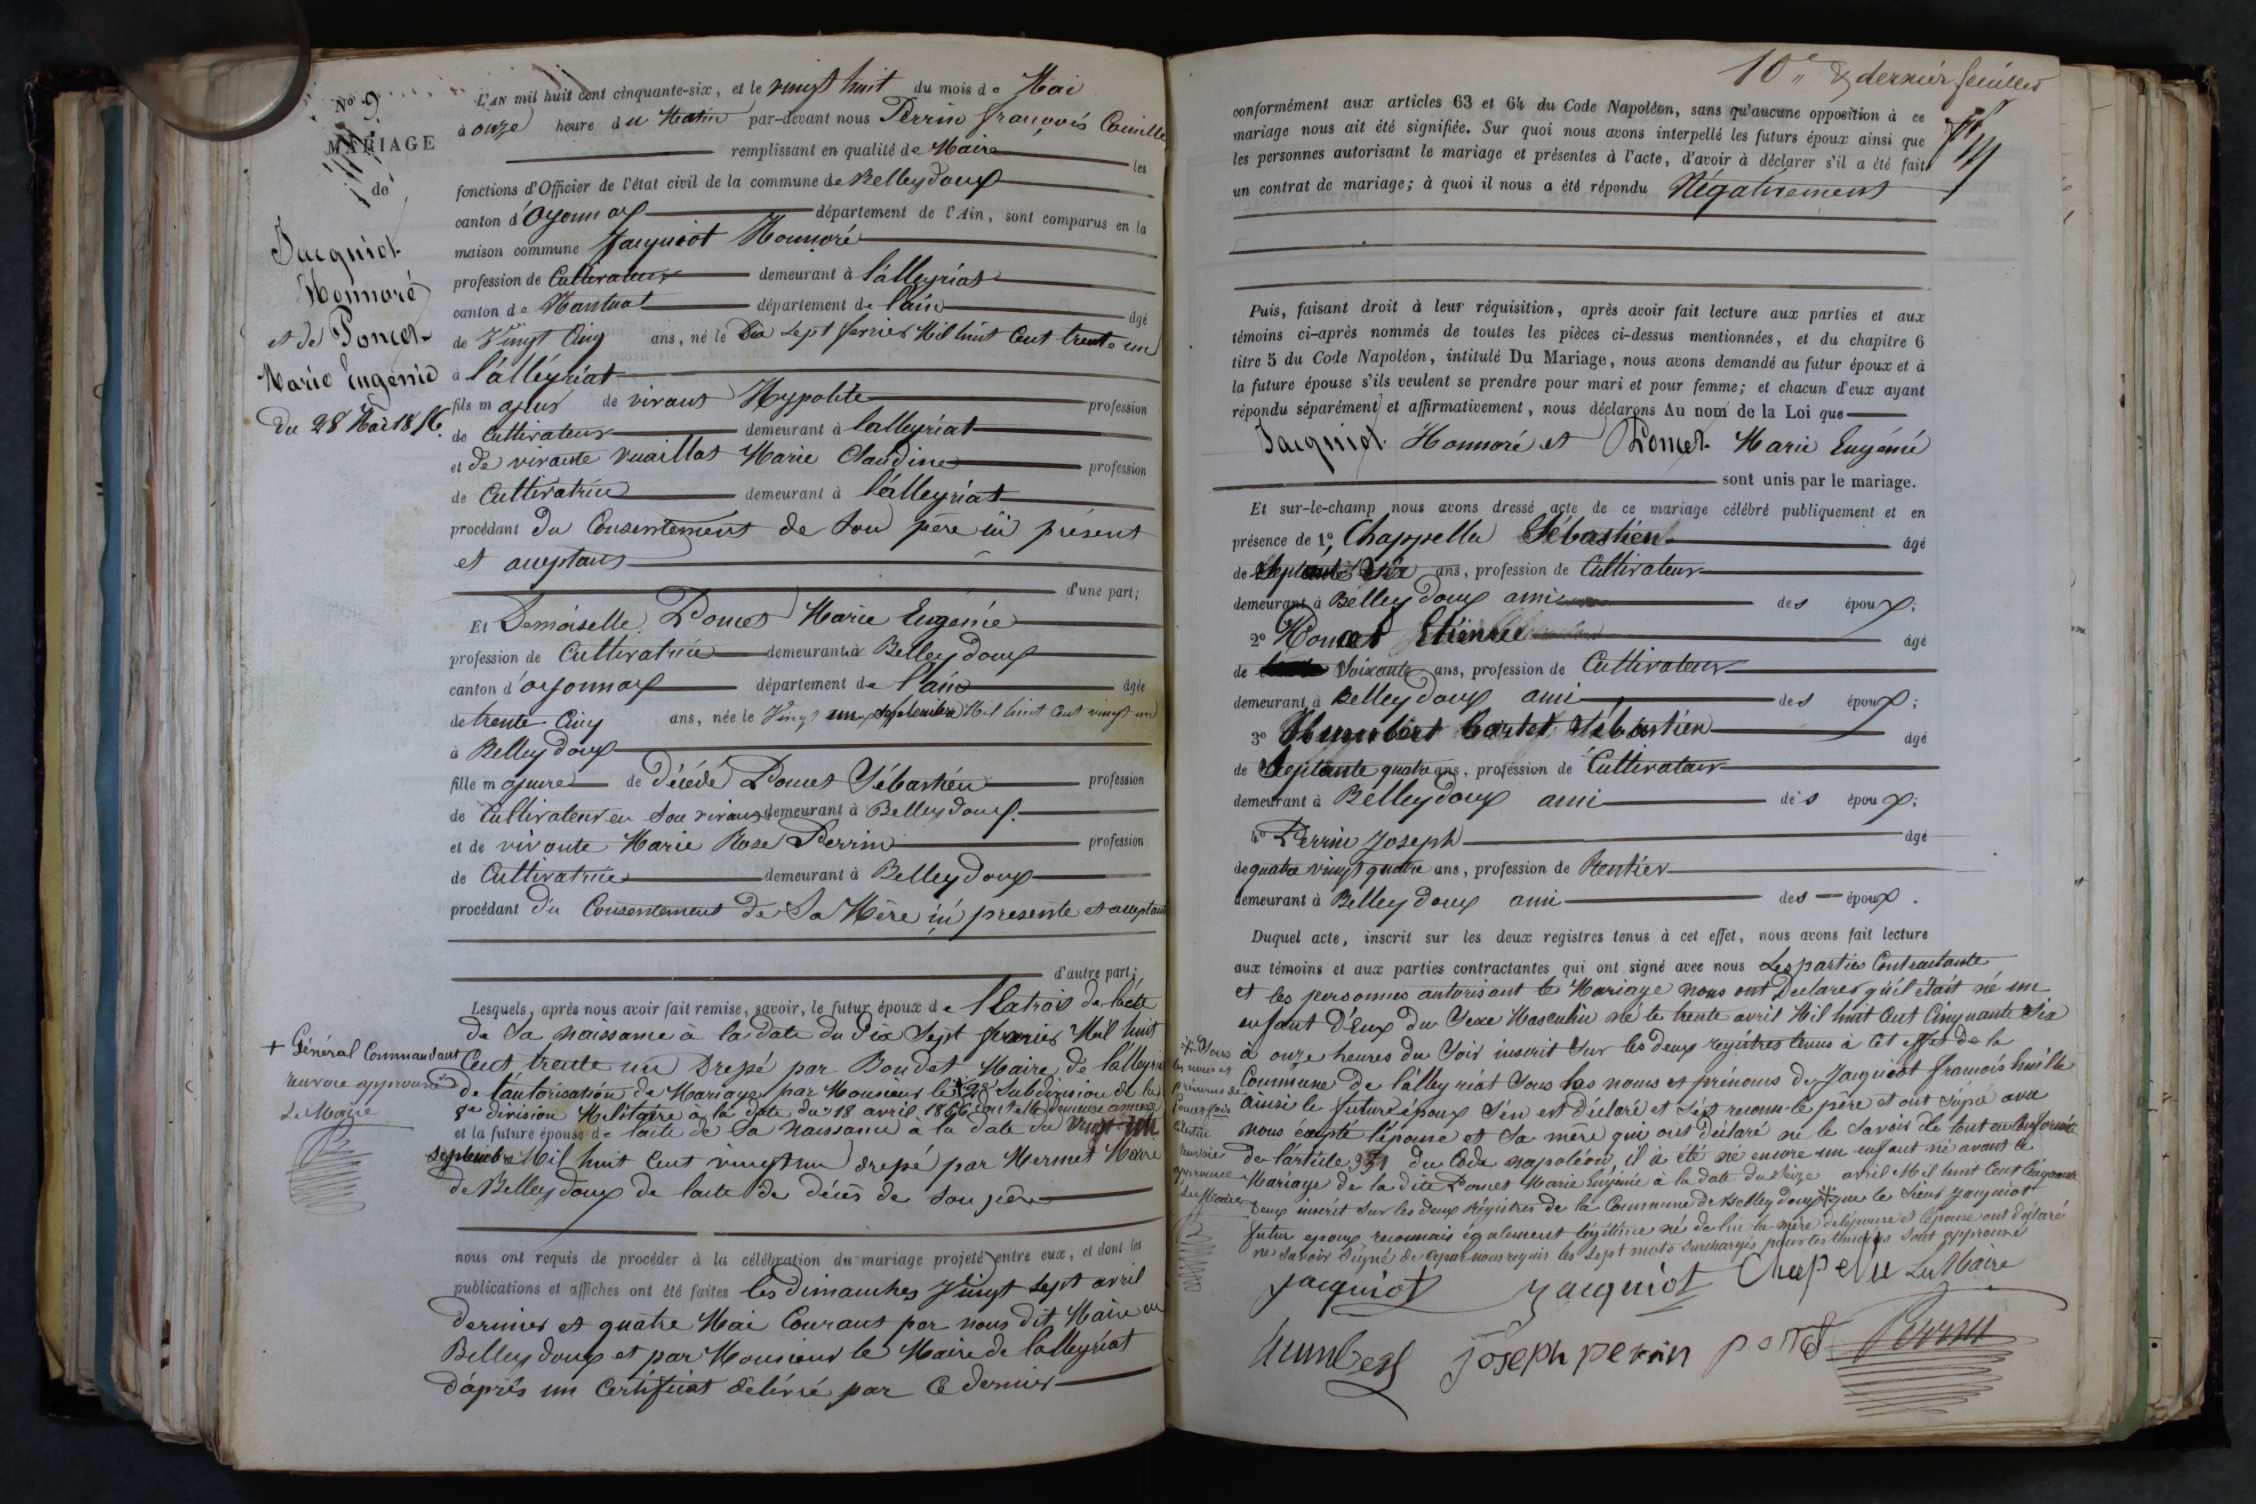 No 9
MARIAGE
de
Jacquiot
Honnoré
et de Poncet
Marie Eugénie
du 28 Mai 1856.
L'AN mil huit cent cinquante-six, et le vingt huit du mois de Mai
à onze heure du Matin par-devant nous Perrin françois Camille
remplissant en qualité de Maire les
fonctions d'Officier de l'état civil de la commune de Belleydoux
canton d'Oyonnax département de l'Ain, sont comparus en la
maison commune Jacquiot Honnoré
profession de Cultivateur demeurant à l'alleyriat
canton de Nantuat département de l'ain âgé
de Vingt Cinq ans, né le Dix sept fevrier Mil huit Cent trente un
à l'alléyriat
fils majeur de vivant Hyppolite profession
de Cultivateur demeurant à lalleyriat
et de vivante vuaillat Marie Claudine profession
de Cultivatrice demeurant à l'alleyriat
procédant du Consentement de Son père ici présent
et aceptant
d'une part;
Et Demoiselle Poncet Marie Eugénie
profession de Cultivatrice demeurant à Belleydoux
canton d'oyonnax département de l'ain âgée
de trente Cinq ans, née le Vingt un septembre Mil huit Cent vingt un
à Belleydoux
fille majeure de Décédé Poncet Sébastien profession
de Cultivateur en Son vivant demeurant à Belleydoux.
et de vivante Marie Rose Perrin profession
de Cultivatrice demeurant à Belleydoux
procédant du Consentement de Sa Mère ici presente et aceptant
d'autre part;
Lesquels, après nous avoir fait remise, savoir, le futur époux de l'Extrait de l'acte
de Sa naissance à la date du Dix Sept fevrier Mil huit
Cent trente un Dressé par Boudet Maire de l'alleyriat
+ Général Commandant
renvoie approuvé
Le Maire
de l'autorisation de Mariage par Monsieur le + 2e Subdivision de la
8e division Militaire à la date du 18 avril 1856 dont elle demeure annexé
et la future épouse de l'acte de Sa naissance à la date du vingt un
septembre Mil huit Cent vingt un dressé par Mermet Maire
de Belleydoux de l'acte de décès de Son père
nous ont requis de procéder à la célébration du mariage projeté entre eux, et dont les
publications et affiches ont été faites les Dimanches Vingt sept avril
dernier et quatre Mai Courant par nous dit Maire en
Belleydoux et par Monsieur le Maire de lalleyriat
d'après un Certificat délivré par Ce dernier
10e & dernier feuillet
conformément aux articles 63 et 64 du Code Napoléon, sans qu'aucune opposition à ce
mariage nous ait été signifiée. Sur quoi nous avons interpellé les futurs époux ainsi que
les personnes autorisant le mariage et présentes à l'acte, d'avoir à déclarer s'il a été fait
un contrat de mariage; à quoi il nous a été répondu Négativement
Puis, faisant droit à leur réquisition, après avoir fait lecture aux parties et aux
témoins ci-après nommés de toutes les pièces ci-dessus mentionnées, et du chapitre 6
titre 5 du Code Napoléon, intitulé Du Mariage, nous avons demandé au futur époux et à
la future épouse s'ils veulent se prendre pour mari et pour femme; et chacun d'eux ayant
répondu séparément et affirmativement, nous déclarons Au nom de la Loi que
Jacquiot Honnoré et Poncet Marie Eugénie
sont unis par le mariage.
Et sur-le-champ nous avons dressé acte de ce mariage célébré publiquement et en
présence de 1º, Chappellu Sébastien âgé
de Septante Six ans, profession de Cultivateur
demeurant à Belleydoux ami des époux;
2º Poncet Etienne âgé
de Soixante ans, profession de Cultivateur
demeurant à Belleydoux ami des époux;
3º Humbert Cartet Sébastien âgé
de Septante quatre ans, profession de Cultivateur
demeurant à Belleydoux ami des époux;
4º Perrin Joseph âgé
de quatre vingt quatre ans, profession de Rentier
demeurant à Belleydoux ami des époux.
Duquel acte, inscrit sur les deux registres tenus à cet effet, nous avons fait lecture
aux témoins et aux parties contractantes qui ont signé avec nous Les parties Contractante
et les personnes autorisant le Mariage nous ont Declarer qu'il était né un
enfant D'Eux du Sexe Masculin né le trente avril Mil huit Cent Cinquante Six
à onze heures du Soir inscrit Sur les deux registres tenus à Cet effet de la
Commune de l'alleyriat Sous les noms et prénoms de Jacquiot francois
ainsi le futur époux S'en est déclaré et S'est reconnu le père et ont Signé avec
nous éxcepté l'épouse et Sa mère qui ont déclaré ne le Savoir de tout en Conformité
de l'article 331 du Code napoléon, il à été né encore un enfant né avant le
Mariage de la dite Poncet Marie Eugénie à la date du Seize avril Mil huit Cent Cinquante
Deux inscrit Sur les deux Régistres de la Commune de Belleydoux que le Sieur Jacquiot
futur epoux reconnais également légitime né de lui la mère de l'épouse et l'épouse ont déclaré
ne Savoir Signé de ce par nous requis les Sept mots Surchargés pour les témoins Sont approuvé
Sous
les noms et
Prénoms de
Poncet
renvoie
approuvé
Le Maire
jacquiot jacquiot Chapellu Le Maire
humbert joseph perrin poncet Perrin